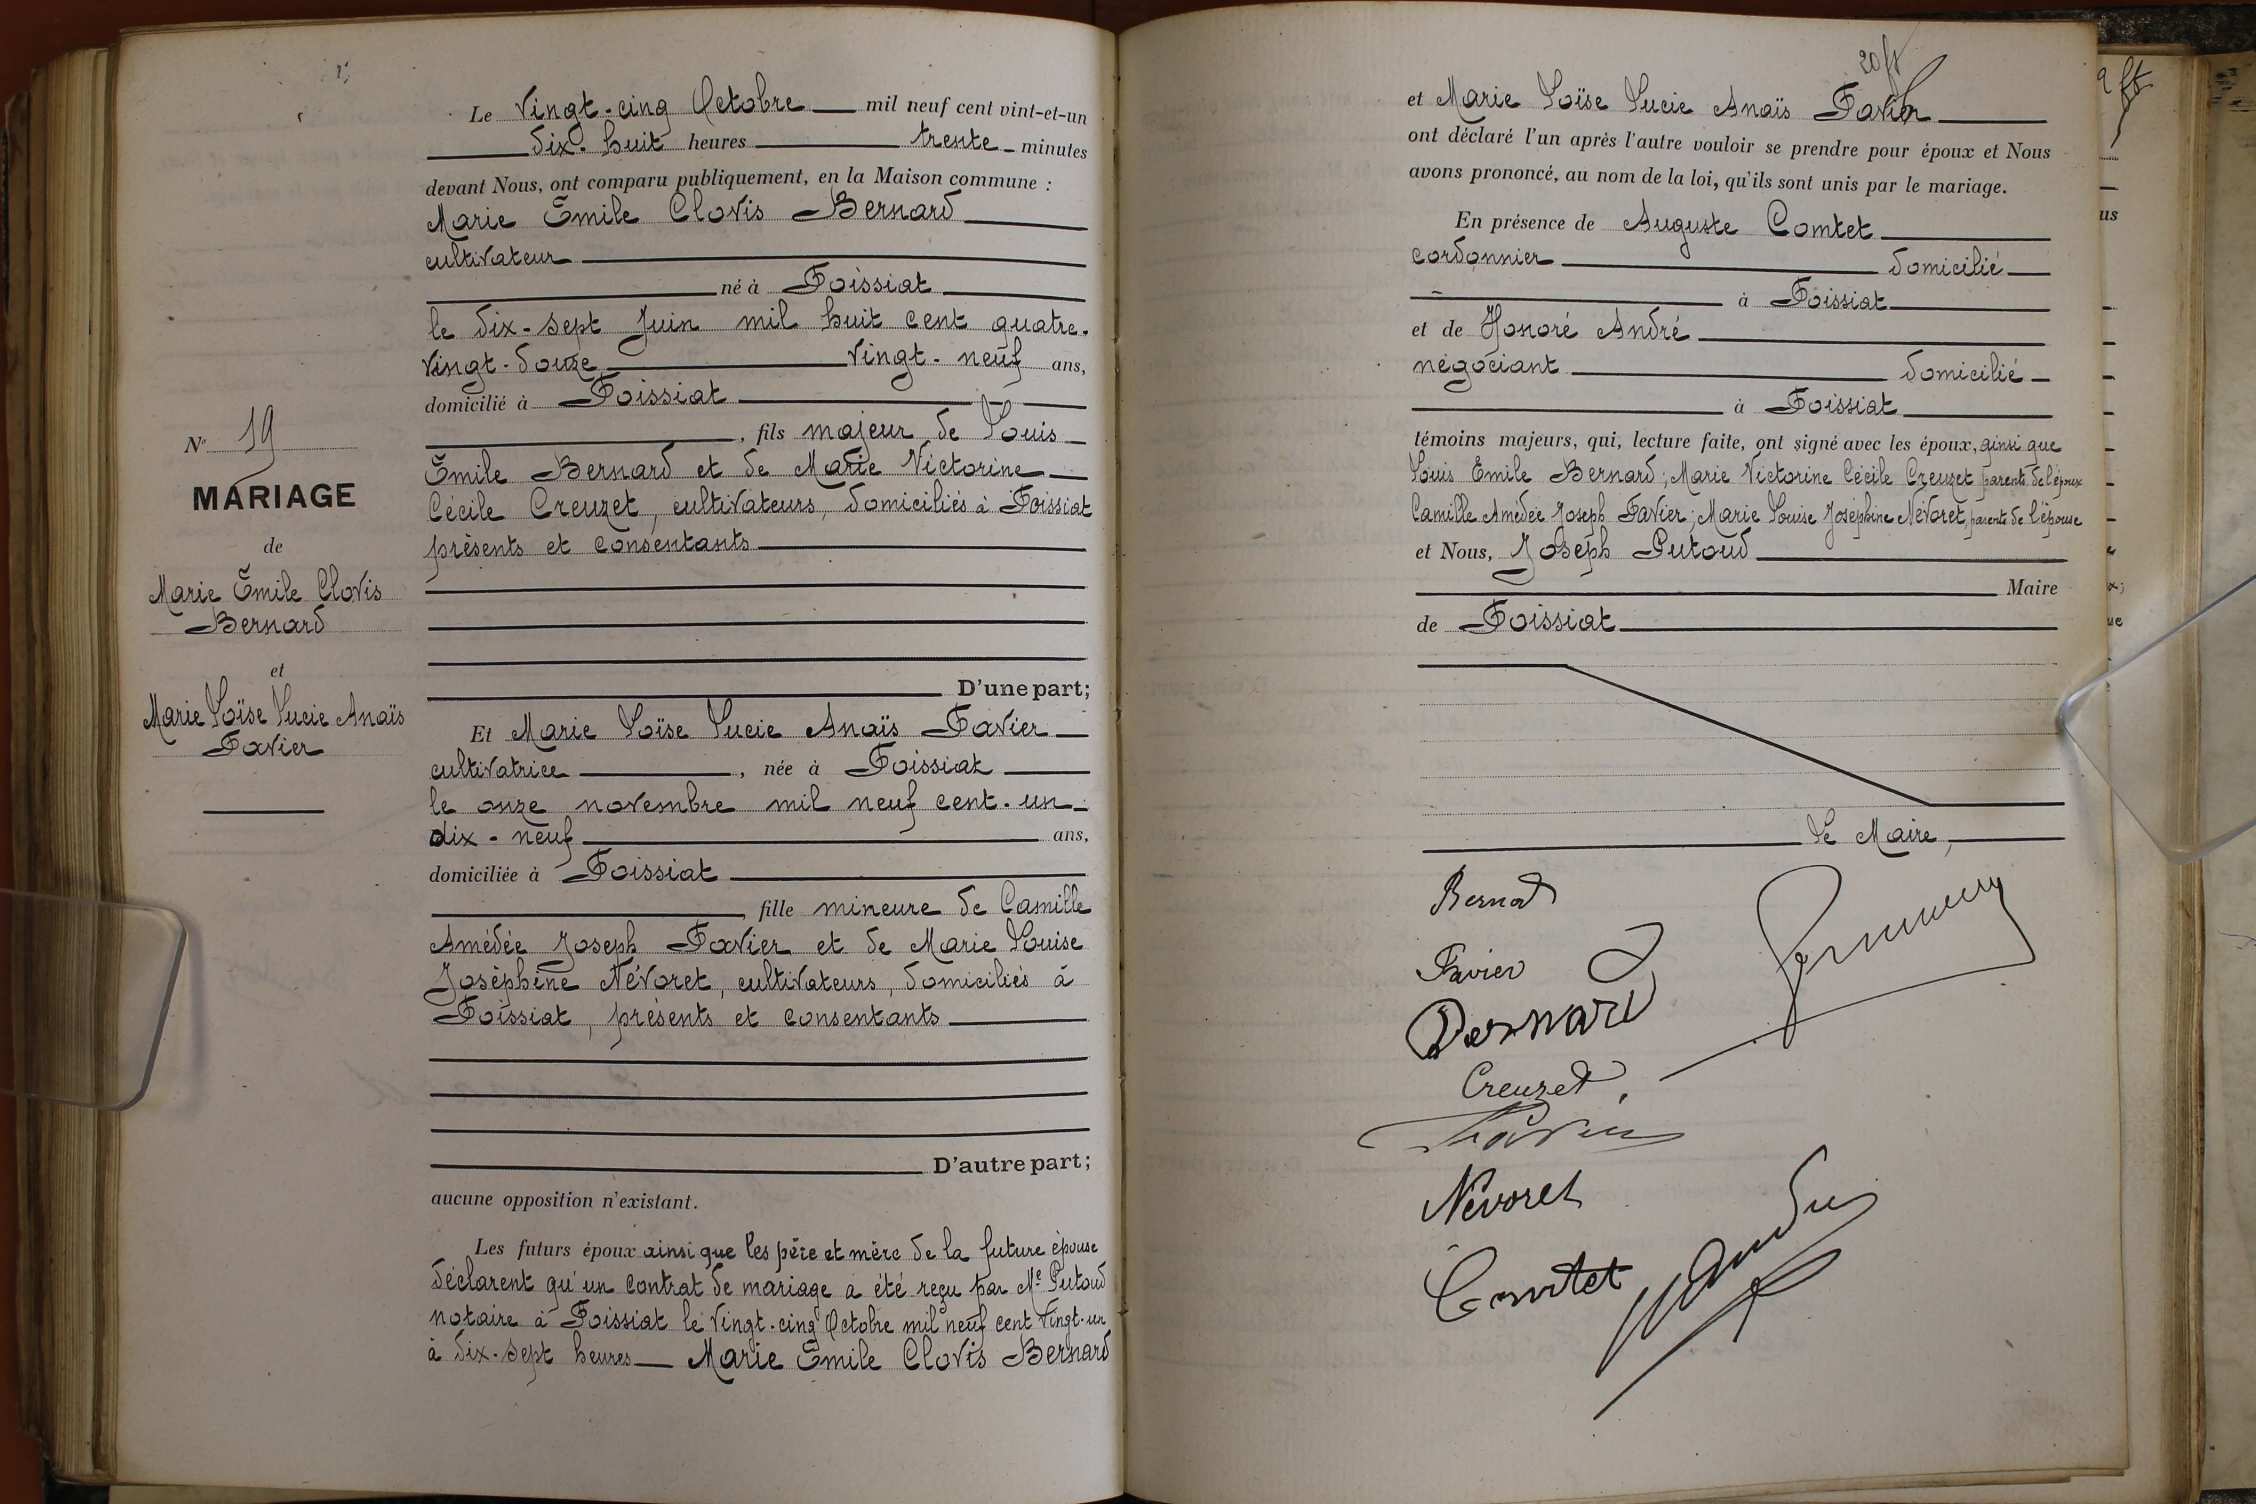 Le Vingt-cinq Octobre mil neuf cent vint-et-un
dix-huit heures trente minutes
devant Nous, ont comparu publiquement, en la Maison commune :
Marie Emile Clovis Bernard
cultivateur
né à Foissiat
le dix-sept Juin mil huit cent quatre-
vingt-douze vingt-neuf ans,
domicilié à Foissiat
, fils majeur de Louis
Emile Bernard et de Marie Victorine
Cécile Creuzet, cultivateurs, domiciliés à Foissiat
présents et consentants
D'une part;
Et Marie Loïse Lucie Anaïs Favier
cultivatrice, née à Foissiat
le onze novembre mil neuf cent-un
dix-neuf ans,
domiciliée à Foissiat
, fille mineure de Camille
Amédée Joseph Favier et de Marie Louise
Joséphine Névoret, cultivateurs, domiciliés à
Foissiat, présents et consentants
D'autre part;
aucune opposition n'existant.
Les futurs époux ainsi que les père et mère de la future épouse
déclarent qu'un contrat de mariage a été reçu par Me Putoud
notaire à Foissiat le vingt-cinq Octobre mil neuf cent vingt-un
à dix-sept heures Marie Emile Clovis Bernard
No 19
MARIAGE
de
Marie Emile Clovis
Bernard
et
Marie Loïse Lucie Anaïs
Favier
20 ft
et Marie Loïse Lucie Anaïs Favier
ont déclaré l'un après l'autre vouloir se prendre pour époux et Nous
avons prononcé, au nom de la loi, qu'ils sont unis par le mariage.
En présence de Auguste Comtet
cordonnier domicilié
à Foissiat
et de Honoré André
négociant domicilié
à Foissiat
témoins majeurs, qui, lecture faite, ont signé avec les époux, ainsi que
Louis Emile Bernard; Marie Victorine Cécile Creuzet parents de l'époux
Camille Amédée Joseph Favier; Marie Louise Joséphine Névoret, parents de l'épouse
et Nous, Joseph Putoud
Maire
de Foissiat
Le Maire,
Bernard
Favier
Bernard
Creuzet
Favier
Névoret
Comtet
André